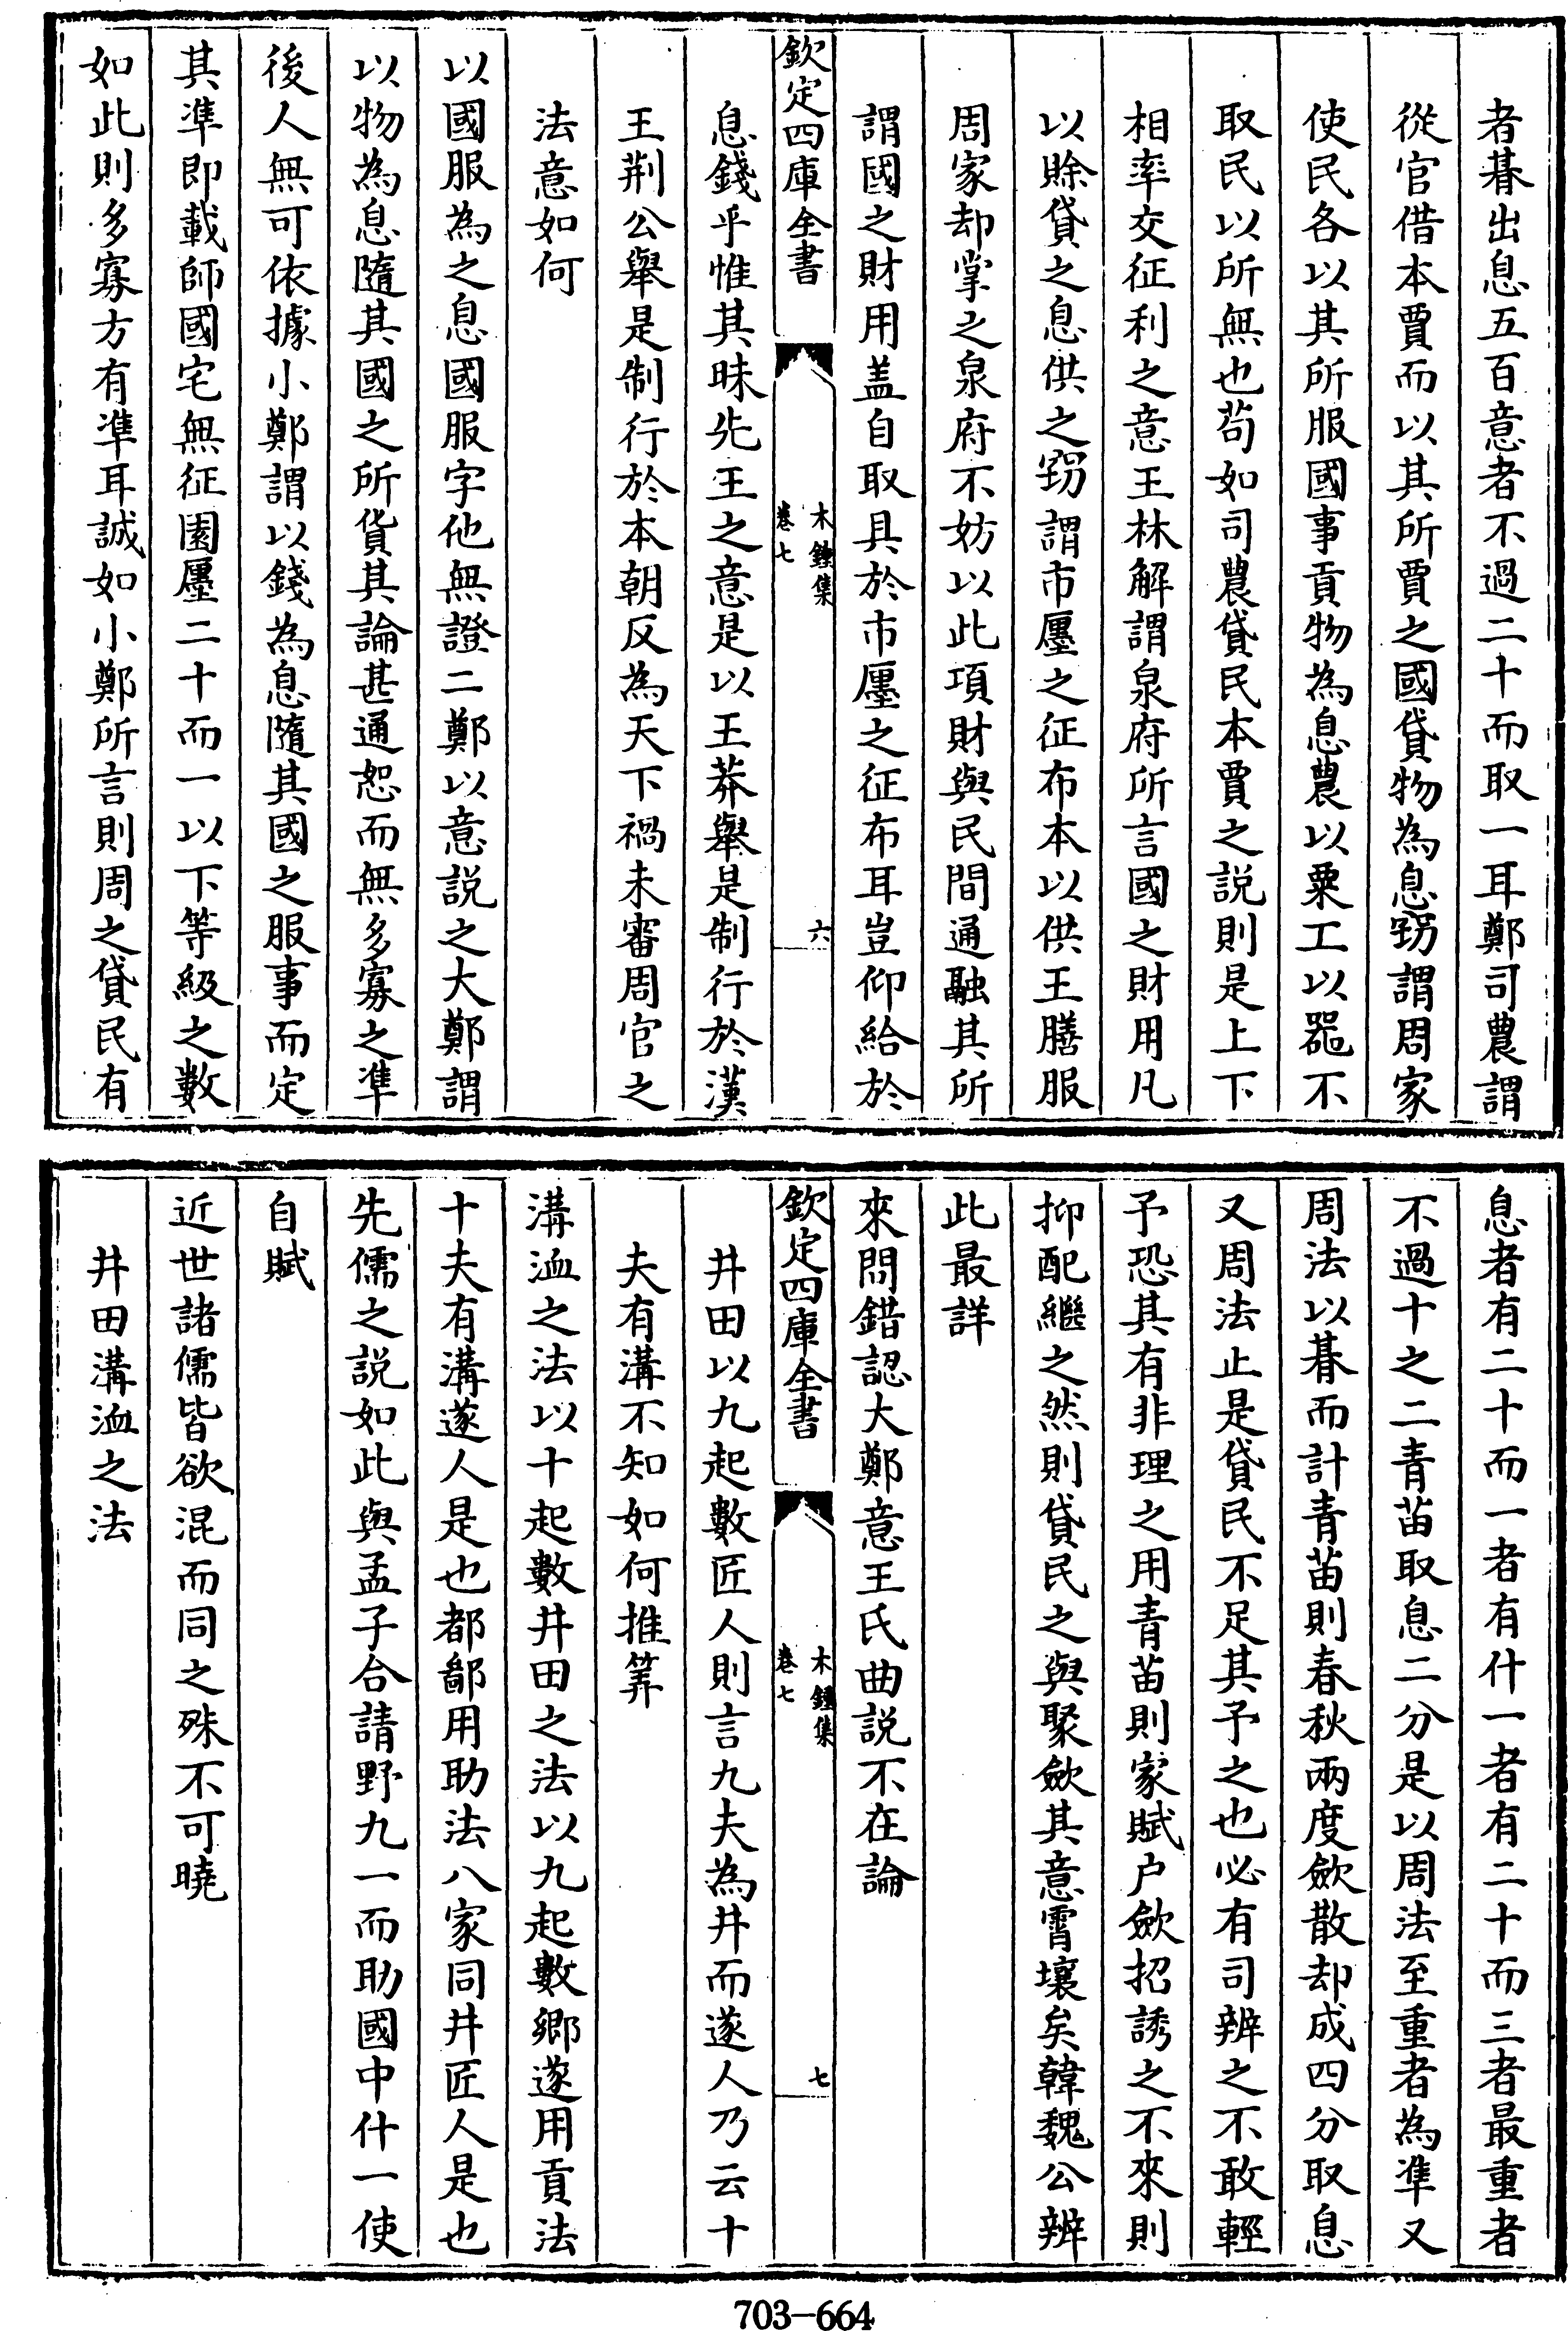 者朞出息五百意者不過二十而取一耳鄭司農謂
從官借本賈而以其所賈之國貸物為息𧦬謂周家
使民各以其所服國事貢物為息農以粟工以器不
取民以所無也苟如司農貸民本賈之説則是上下
相率交征利之意王林解謂泉府所言國之財用凡
以賒貸之息供之𧦬謂市廛之征布本以供王膳服
周家却掌之泉府不妨以此項財與民間通融其所
謂國之財用盖自取具於市廛之征布耳豈仰給於
欽定四庫全書
木鍾集
卷七
六
息錢乎惟其昧先王之意是以王莽舉是制行於漢
王荆公舉是制行於本朝反為天下禍未審周官之
法意如何
以國服為之息國服字他無證二鄭以意説之大鄭謂
以物為息隨其國之所貨其論甚通恕而無多寡之準
後人無可依據小鄭謂以錢為息隨其國之服事而定
其準即載師國宅無征園廛二十而一以下等級之數
如此則多寡方有準耳誠如小鄭所言則周之貸民有
息者有二十而一者有什一者有二十而三者最重者
不過十之二青苗取息二分是以周法至重者為準又
周法以朞而計青苗則春秋兩度斂散却成四分取息
又周法止是貸民不足其予之也必有司辨之不敢輕
予恐其有非理之用青苗則家賦户斂招誘之不來則
抑配繼之然則貸民之與聚斂其意霄壤矣韓魏公辨
此最詳
來問錯認大鄭意王氏曲説不在論
欽定四庫全書
木鍾集
卷七
七
井田以九起數匠人則言九夫為井而遂人乃云十
夫有溝不知如何推筭
溝洫之法以十起數井田之法以九起數鄉遂用貢法
十夫有溝遂人是也都鄙用助法八家同井匠人是也
先儒之説如此與孟子合請野九一而助國中什一使
自賦
近世諸儒皆欲混而同之殊不可曉
井田溝洫之法
703-664